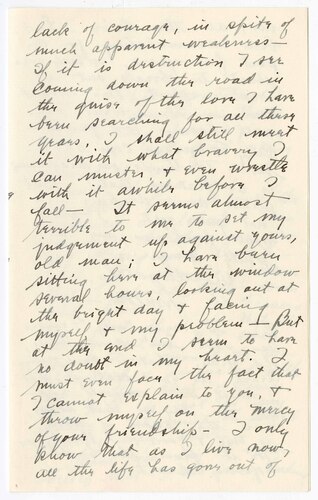 lack of courage, in spite of
much apparent weakness—
If it is destruction I see
coming down the road in
the guise of the love I have
been searching for all these
years, I shall still meet
it with what bravery I
can muster, & even wrestle
with it awhile before I
fall— It seems almost
terrible to me to set my
judgement up against yours,
old man; I have been
sitting here at the window
several hours, looking out at
the bright day & facing
myself & my problem— But
at the end I seem to have
no doubt in my heart. I
must even face the fact that
I cannot explain to you, &
throw myself on the mercy
of your friendship— I only
know that as I live now,
all the life has gone out of